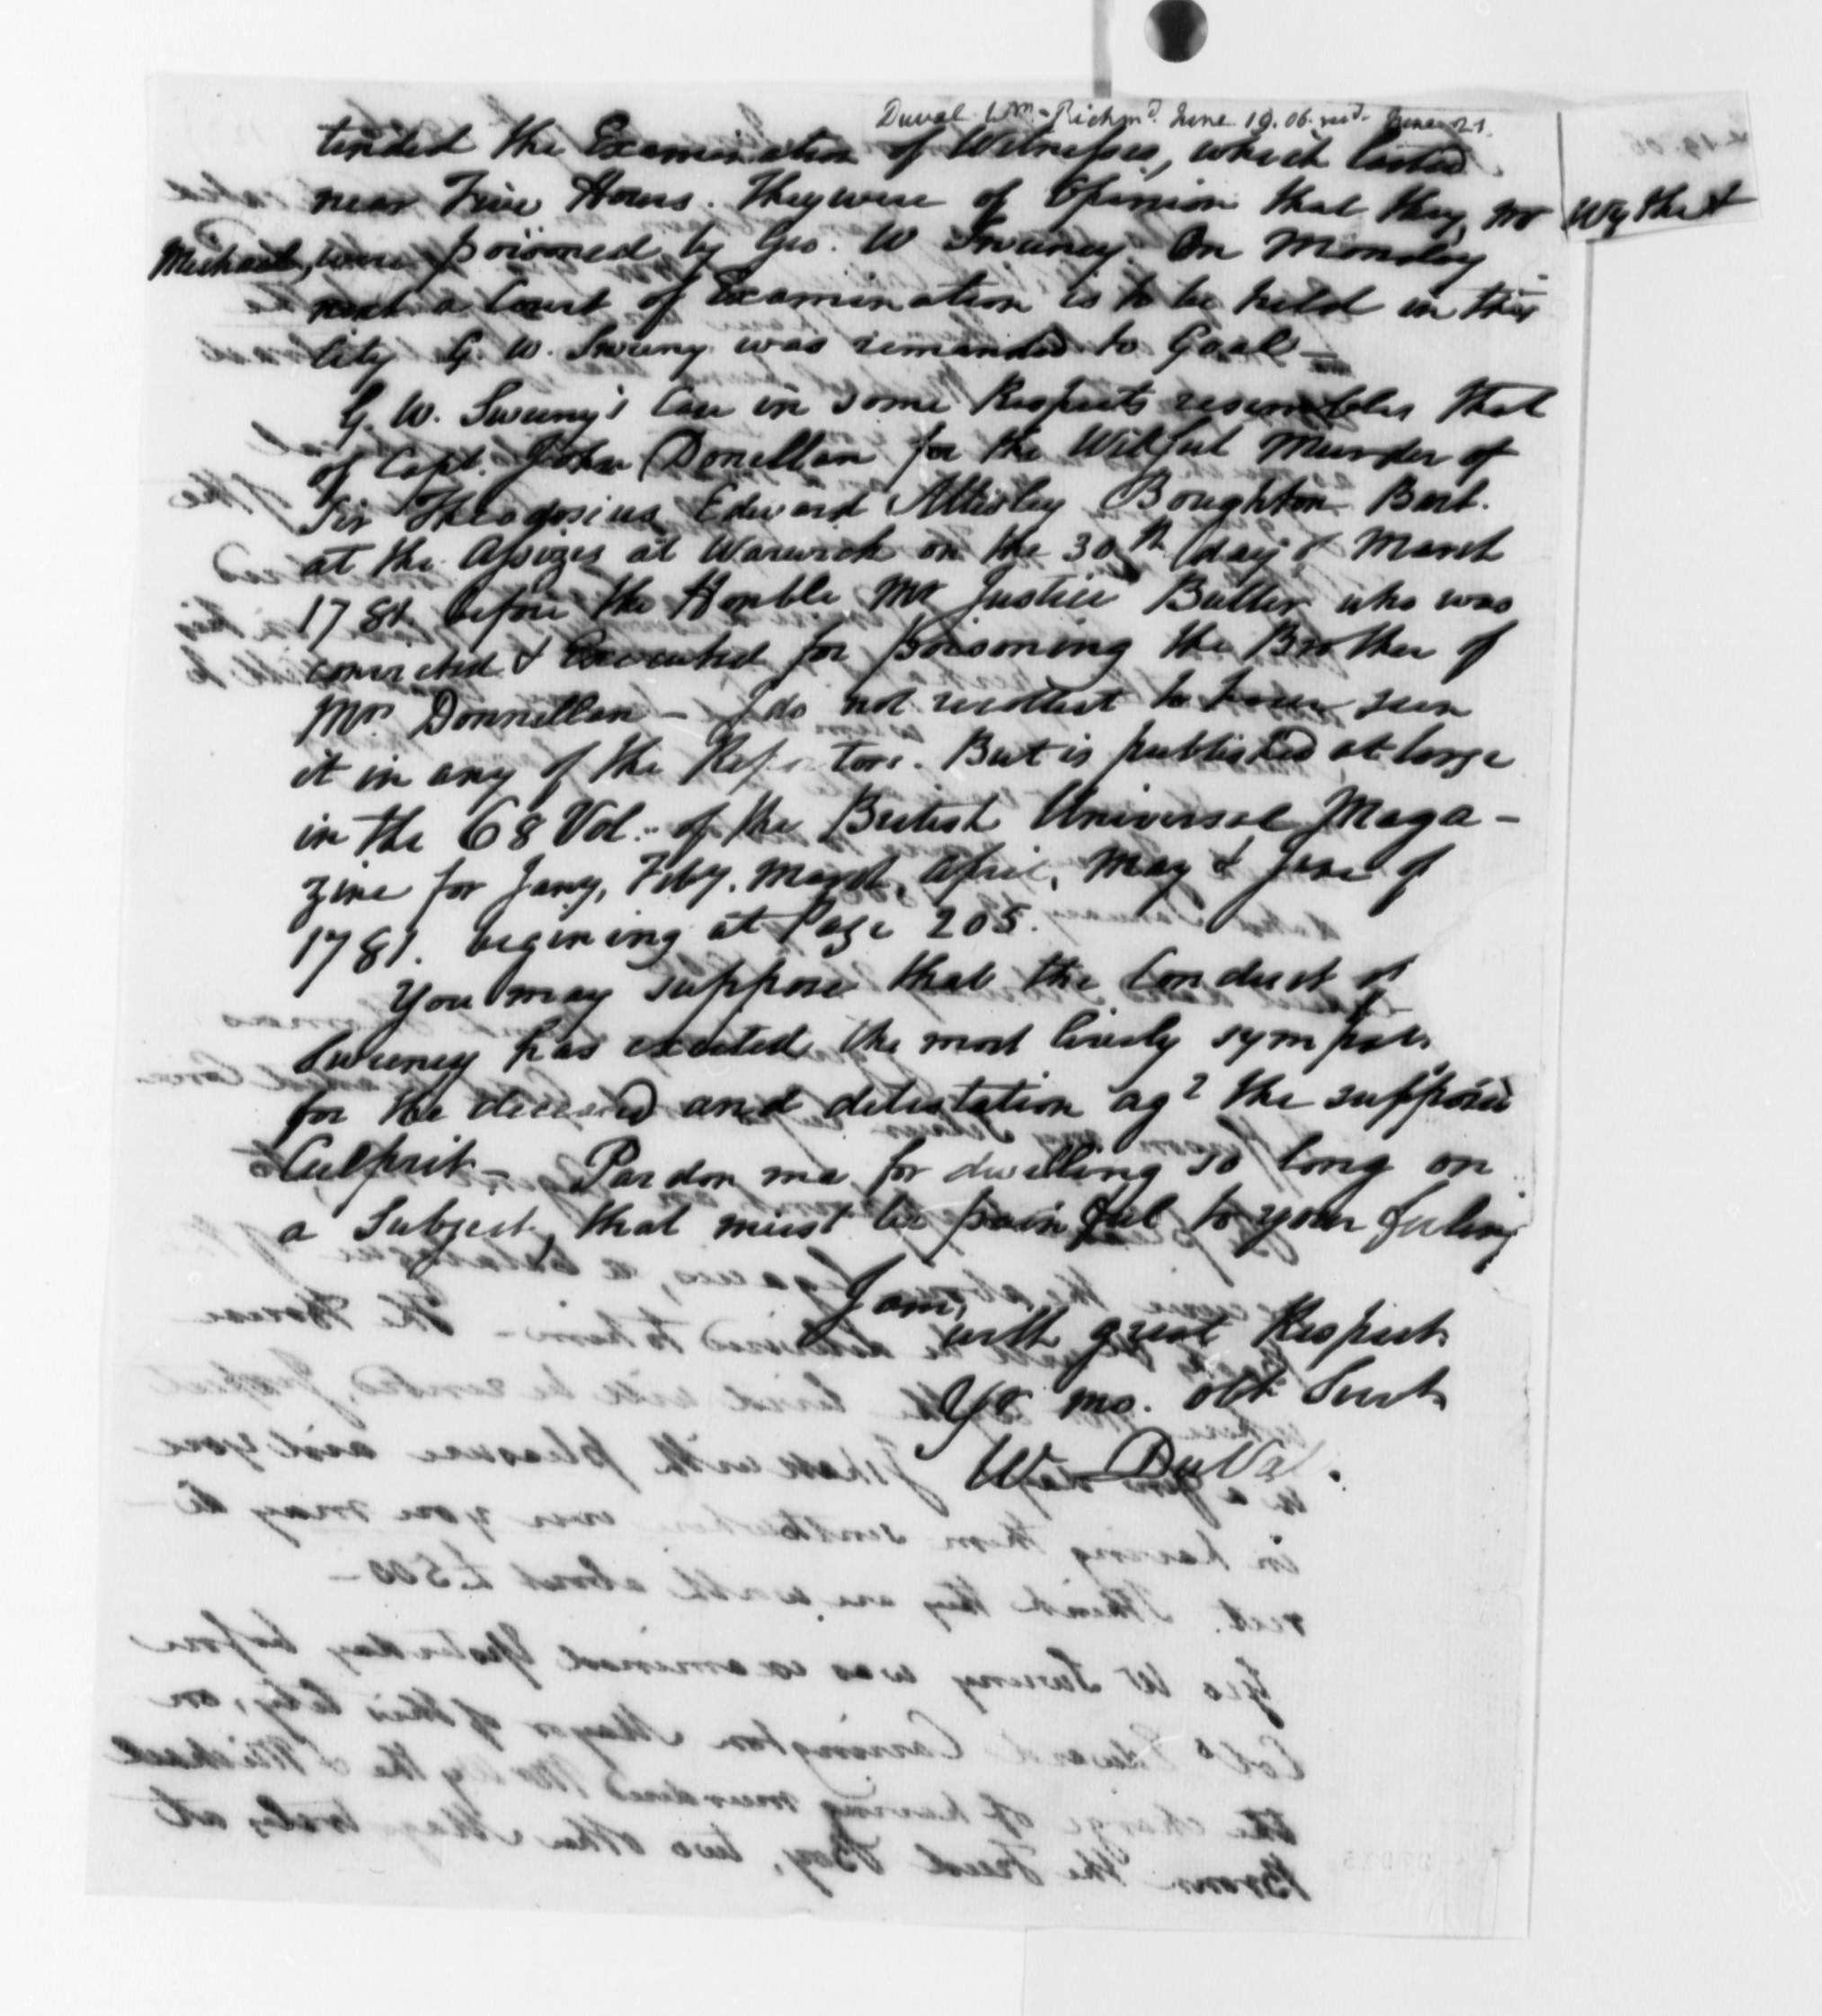 Duval Wm. Richmd. June 19. 06. recd. June 21.
tended the Examination of Witnesses, which lasted
near Five Hours. They were of Opinion that they, Mr Wythe &
Michael, were poisoned by Geo. W Sweeney. On Monday
next a Court of Examination is to be held in this
City G. W. Sweeny was remanded to Goal—
G. W. Sweeny's Case in some Respects resembles that
of Capt. John Donellan for the Wilful Murder of
Sir Theodosius Edward Allesley Boughton Bart.
at the Assizes at Warwick on the 30th day of March
1781 before the Honble Mr Justice Buller who was
convicted & Executed for poisoning the Brother of
Mrs Donnellan — I do not recollect to have seen
it in any of the Reporters. But is published at large
in the 68 Vol. of the British Universal Maga-
zine for Jany, Feby. March, April, May & June of
1781. begining at Page 205.
You may suppose that the Conduct of
Sweeney has excited the most lively sympathy
for the deceased and detestation agt the supposed
Culprit — Pardon me for dwelling so long on
a Subject, that must be painful to your feelings
I am,
with great Respect
Yr mo. obt Servt
Wm DuVal.